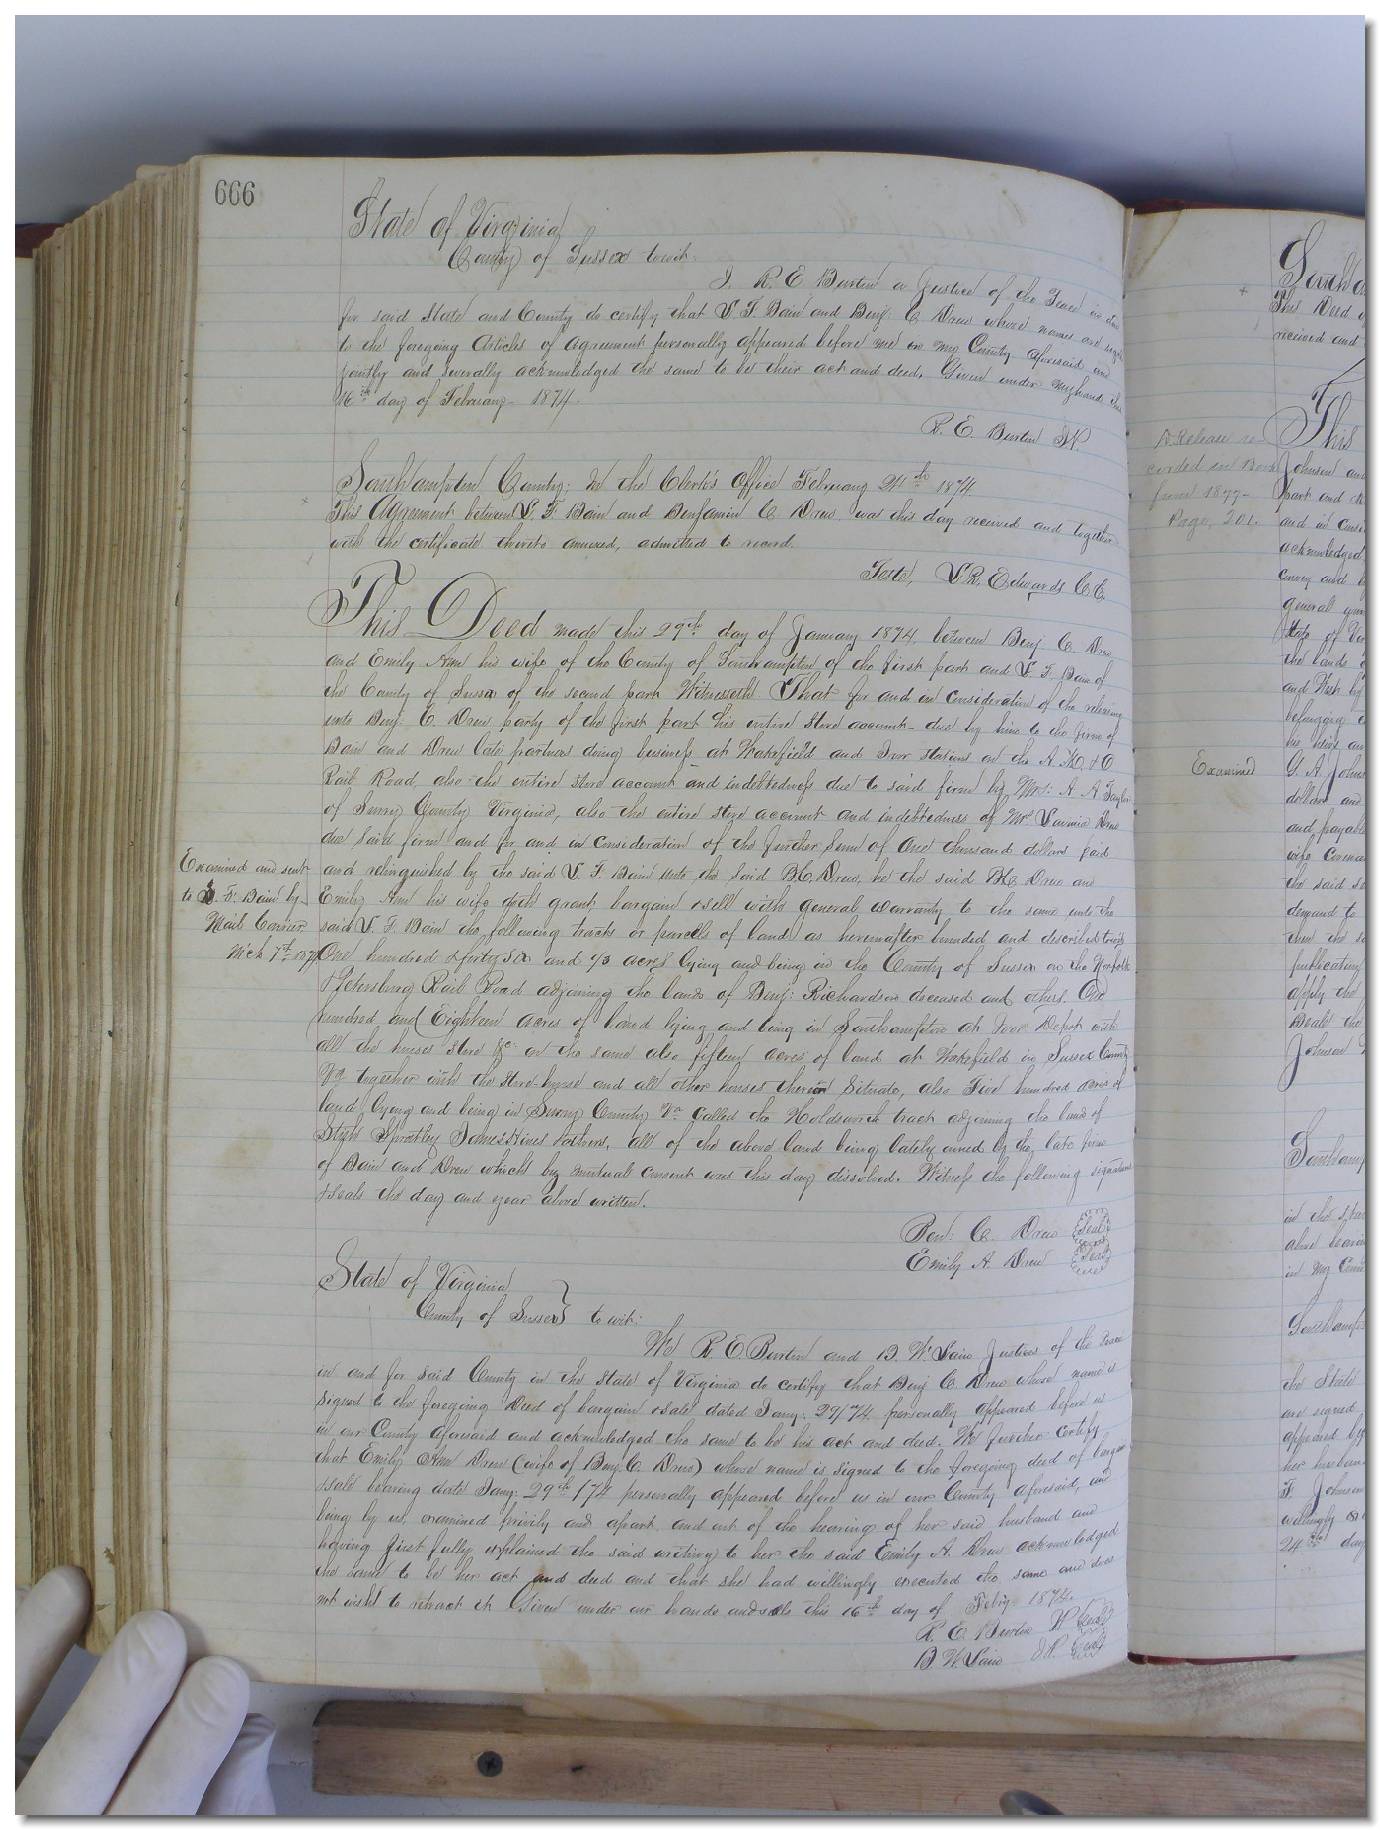 666
State of Virginia
County of Sussex towit:
I. R. E Burton a Justice of the Peace in and
for said State and County do certify that S. F. Bain and Benj. C Drew whose names are signed
to the foregoing Articles of Agreement personally appeared before me in my County aforesaid and
jointly and severally acknowledged the same to be their act and deed. Given under my hand this
16th day of February 1874.
R. E. Burton J.P.
Southampton County: In the Clerk's Office February 24th 1874
This Agreement between S. F. Bain and Benjamin C Drew was this day received and together
with the certificate thereto annexed, admitted to record.
Teste, L. R. Edwards C. C.
This Deed made this 29th day of January 1874 between Benj C Drew
and Emily Ann his wife of the County of Southampton of the first part and S. F. Bain of
the County of Sussex of the second part Witnesseth That for and in consideration of the releasing
unto Benj. C. Drew party of the first part his entire store account due by him to the firm of
Bain and Drew late partners doing business at Wakefield and Ivor Stations on the A. M. & O
Rail Road, also the entire store account and indebtedness due to said firm by Mrs. A A Taylor
of Surry County Virginia, also the entire store account and indebtedness of Mrs Drew
due said firm and for and in consideration of the further sum of One thousand dollars paid
and relinquished by the said S. F. Bain unto the said B.C. Drew, he the said B.C. Drew and
Emily Ann his wife doth grant bargain & sell with general warranty to the same unto the
said S. F. Bain the following tracts or parcels of land as hereinafter bounded and described to wit
One hundred & forty six and 1/3 acres lying and being in the County of Sussex on the Norfolk
& Petersburg Rail Road adjoining the lands of Benj: Richardson deceased and others. One
hundred and Eighteen acres of land lying and being in Southampton at Ivor Depot with
all the houses store &c on the same also fifteen acres of land at Wakefield in Sussex County
Va together with the store house and all other houses thereon Situate, also Five hundred acres of
land lying and being in Surry County Va called the Holdsworth tract adjoining the land of
Stith Spratley James Hines & others, all of the above land being lately owned by the late firm
of Bain and Drew which by mutual consent was this day dissolved. Witness the following signatures
& seals the day and year above written.
Benj: C. Drew Seal
Emily A. Drew Seal
Examined and sent
to S. F. Bain by
Mail Carrier
Mch 7th
State of Virginia
County of Sussex } to wit:
We R. E. Burton and B. W. Justices of the Peace
in and for said County in the State of Virginia do certify that Benj C. Drew whose name is
signed to the foregoing Deed of bargain & sale dated Jany. 29/74 personally appeared before us
in our County aforesaid and acknowledged the same to be his act and deed. We further certify
that Emily Ann Drew (wife of Benj. C. Drew) whose name is signed to the foregoing deed of bargain
& sale bearing date Jany. 29th /74 personally appeared before us in our County aforesaid, and
being by us examined privily and apart and out of the hearing of her said husband and
having first fully explained the said writing to her she the said Emily A. Drew acknowledged
the same to be her act and deed and that she had willingly executed the same and does
not wish to retract it Given under our hands and seals this 16th day of Feby 1874.
R. E. Burton JP Seal
B W J.P. Seal
This Deed
received and
A Release re-
corded in Book
from 1877-
Page, 201.
Examined
This
Johnson and
part and
and in
acknowledged
convey and
general
State of
the lands
and West by
belonging
his heirs
G. A. Johns
dollars and
and payable
wife
the said
demand to
then the
publication
apply the
Deals the
Johnson
in the
above
in my
the State
are signed
appeared
her husban
F. Johnson
willingly
24th day